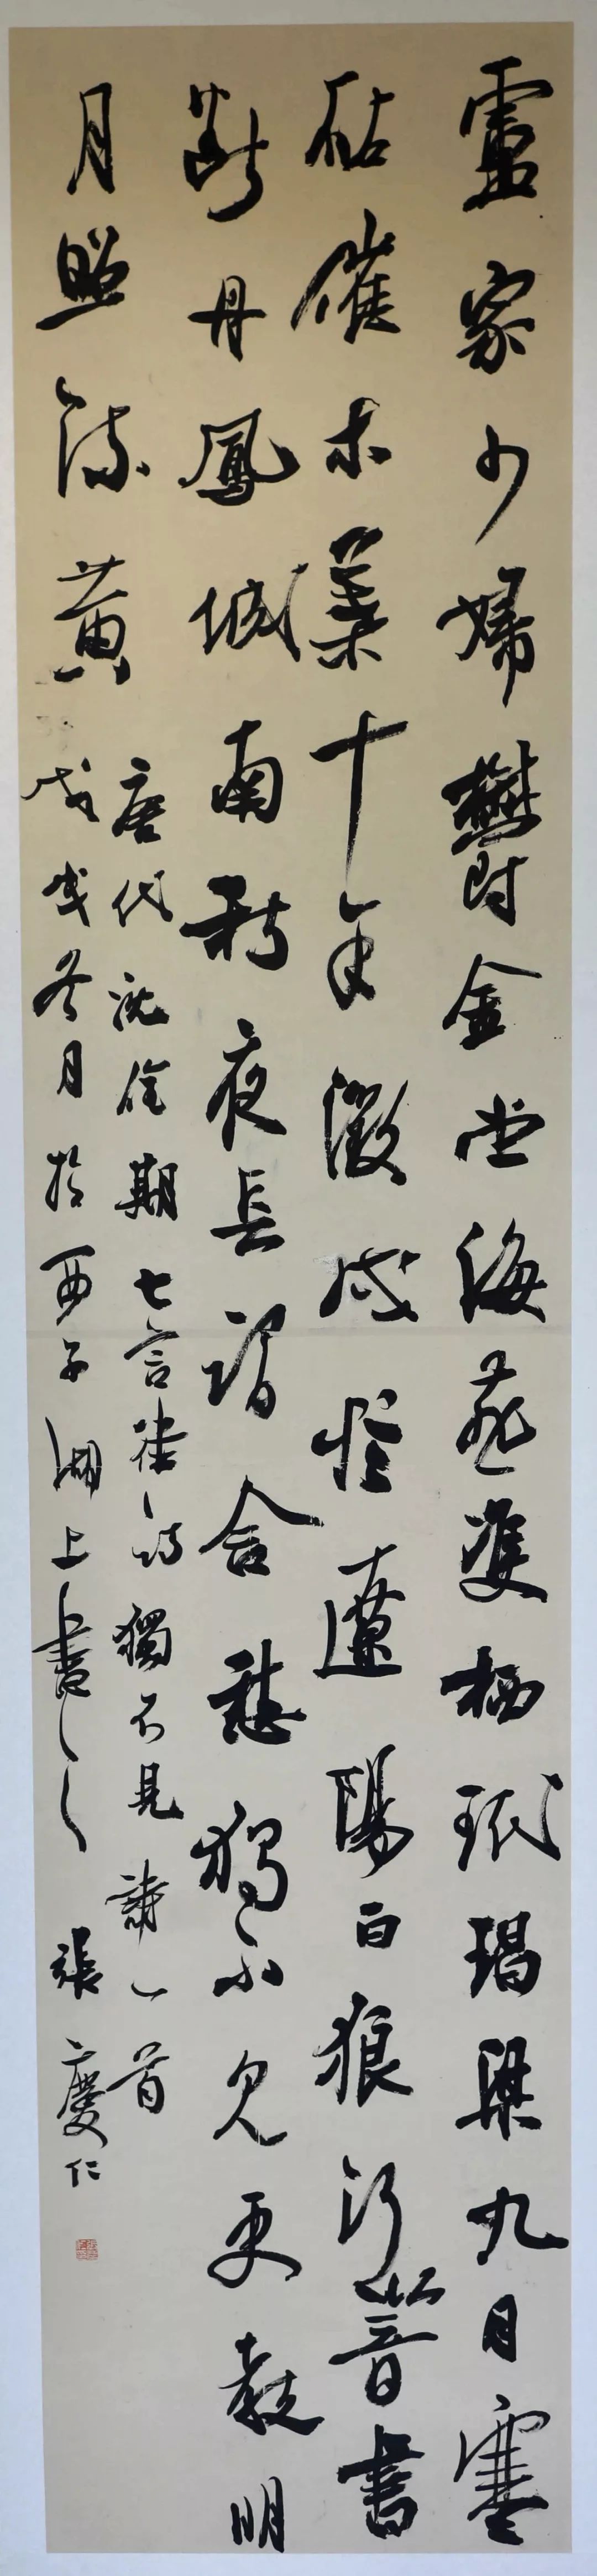 盧家少婦鬱金堂海燕雙栖玳瑁梁九月寒
砧催木葉十年徵戍憶遼陽白狼河北音書
斷丹鳳城南秋夜長謂含愁獨不見更教明
月照流黃
唐代沈佺期七言律詩獨不見一首
戊戌冬月於西子湖上書之 張慶仁